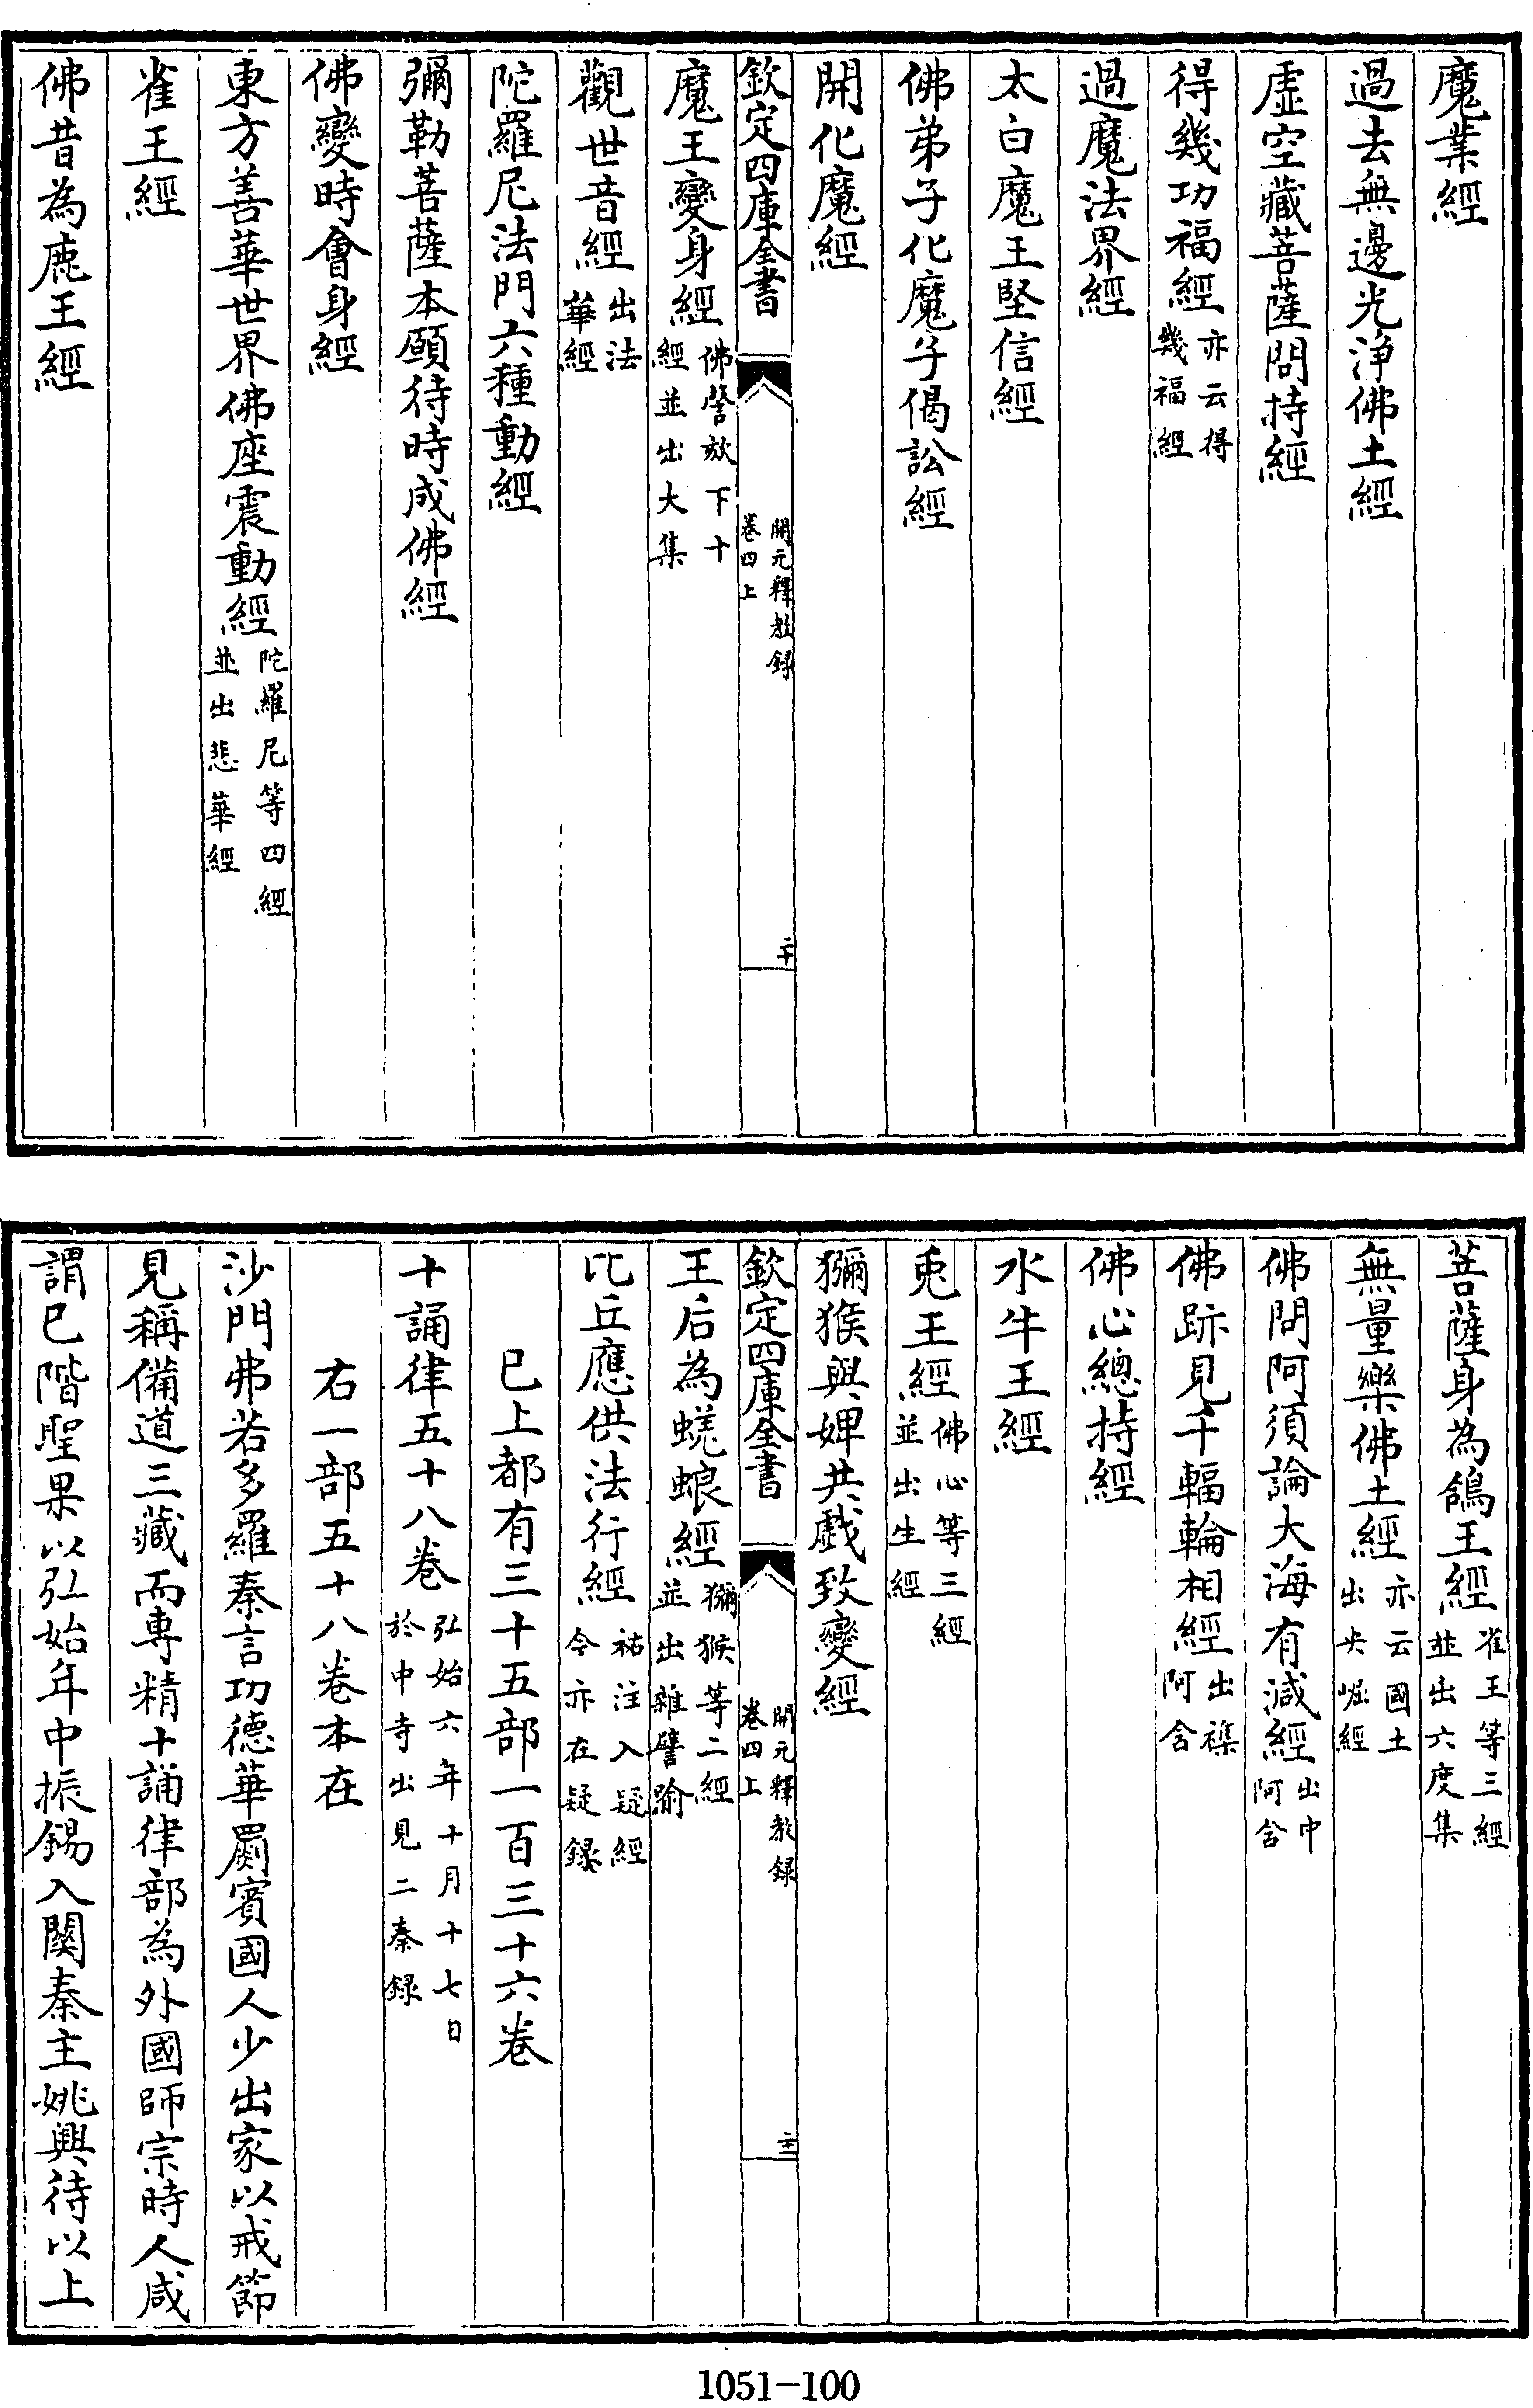 魔業經
過去無邊光淨佛土經
虛空藏菩薩問持經
得幾功福經亦云得幾福經
過魔法界經
太白魔王堅信經
佛弟子化魔子偈訟經
開化魔經
欽定四庫全書
開元釋教録
卷四上
二十
魔王變身經佛謦欬下十經並出大集
觀世音經出法華經
陀羅尼法門六種動經
彌勒菩薩本願待時成佛經
佛變時會身經
東方善華世界佛座震動經陀羅尼等四經並出悲華經
雀王經
佛昔為鹿王經
菩薩身為鴿王經雀王等三經並出六度集
無量樂佛土經亦云國土出央崛經
佛問阿須論大海有減經出中阿含
佛跡見千輻輪相經出襍阿含
佛心總持經
水牛王經
兎王經佛心等三經並出生經
獼猴與婢共戲致變經
欽定四庫全書
開元釋教録
卷四上
二十一
王后為蜣蜋經獼猴等二經並出雜譬喻
比丘應供法行經祐注入疑經今亦在疑録
已上都有三十五部一百三十六卷
十誦律五十八卷弘始六年十月十七日於中寺出見二秦録
右一部五十八卷本在
沙門弗若多羅秦言功德華罽賓國人少出家以戒節
見稱備道三藏而專精十誦律部為外國師宗時人咸
謂已階聖果以弘始年中振錫入關秦主姚興待以上
1051-100